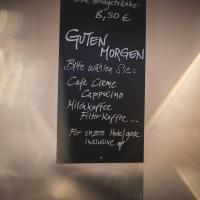 Eine Heissgetränke-
8,50 €
GUTEN
MORGEN
Bitte wählen Sie:
Cafe Creme
Cappucino
Milchkaffee
Filterkaffee ...
Für unsere Hotelgäste
inklusive